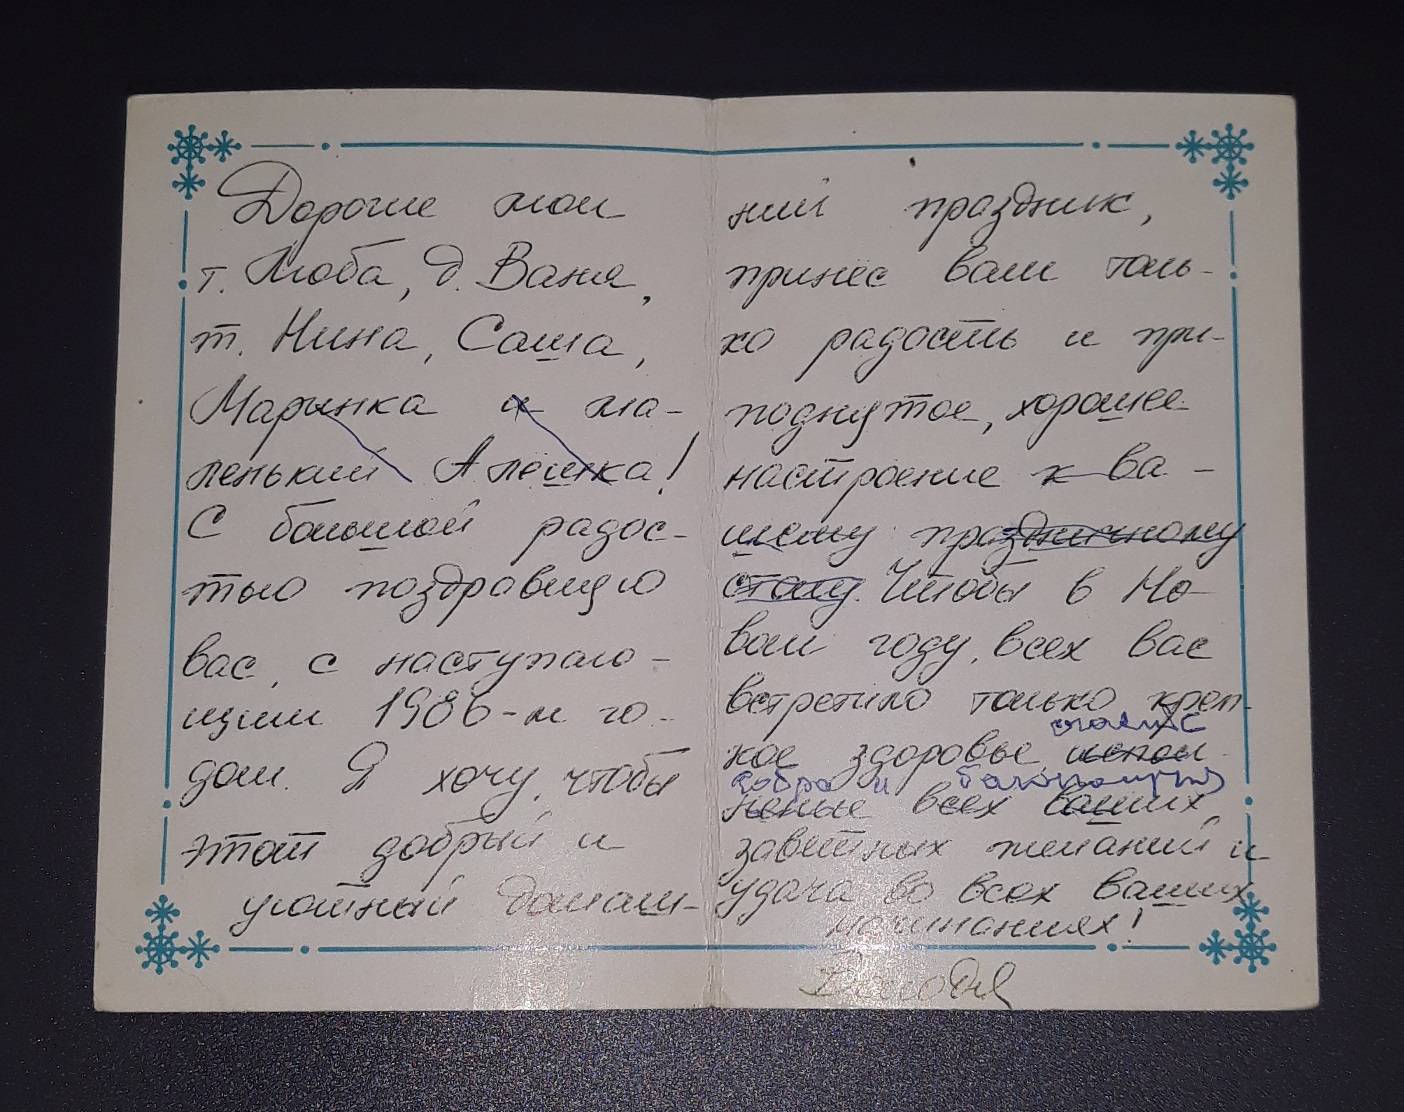 Дорогие мои
т. Люба, д. Ваня,
т. Нина, Саша,
Маринка и ма-
ленький Алёшка!
С большой радос-
тью поздравляю
вас, с наступаю-
щим 1986-м го-
дом. Я хочу, чтобы
этот добрый и
уютный домаш-
ний праздник,
принёс вам толь-
ко радость и при-
поднятое, хорошее
настроение к ва-
шему праздничному
столу. Чтобы в Но-
вом году, всех вас
встретило только креп-
счастье
кое здоровье, испол-
добра и благополучия
нение всех ваших
заветных желаний и
удача во всех ваших
начинаниях!
Володя